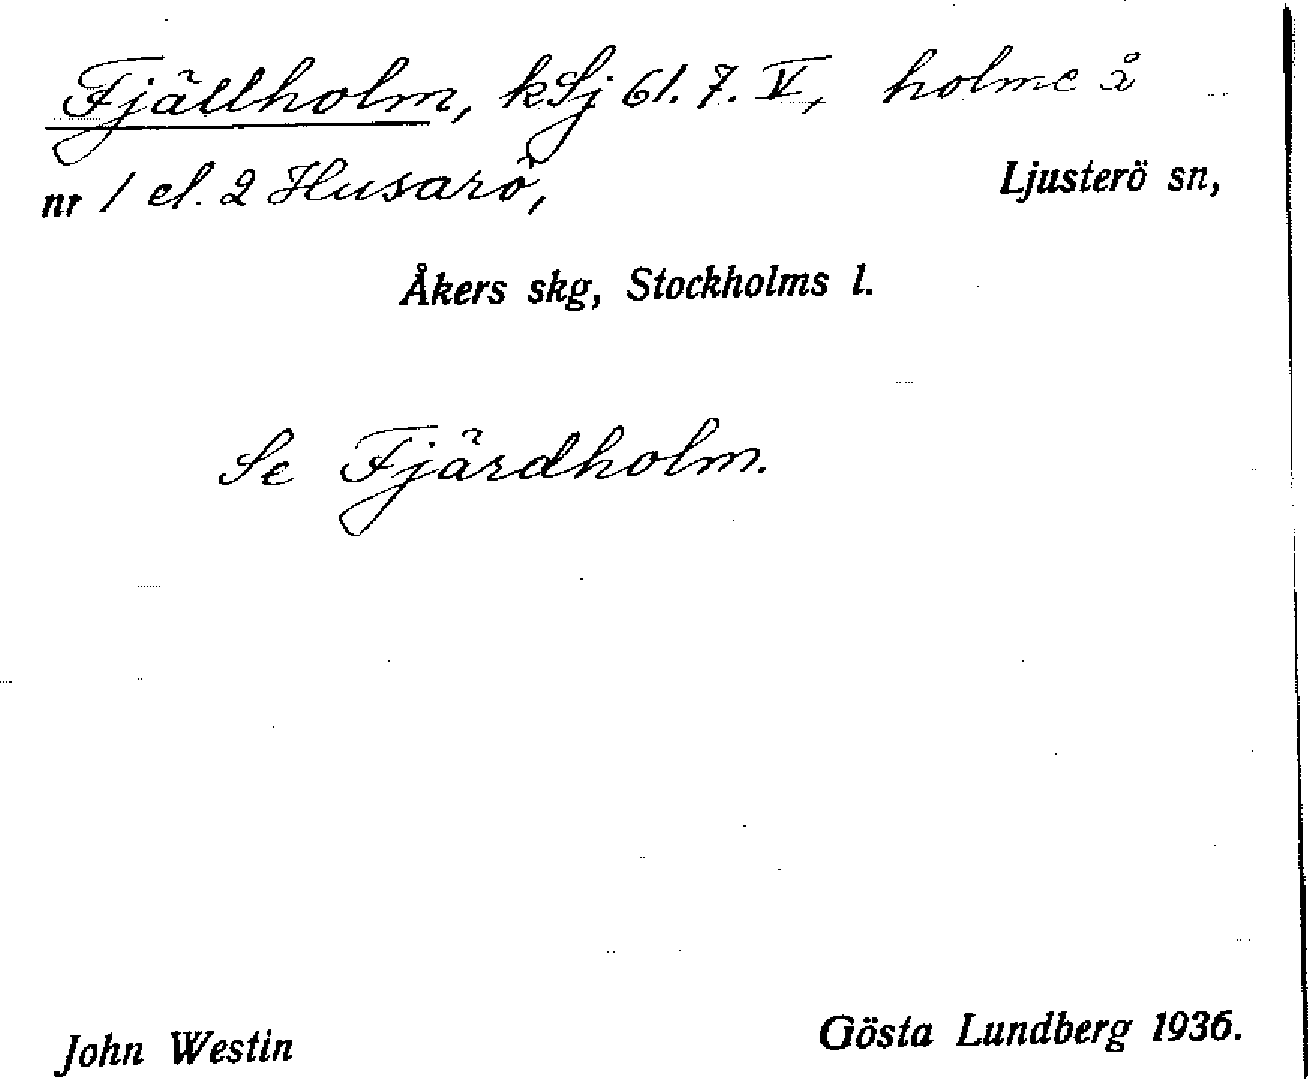 Fjällholm, kSj 61. 7. V, holme å
nr 1 el. 2 Husarö, Ljusterö sn,
Åkers skg, Stockholms l.
Se Fjärdholm.
John Westin Gösta Lundberg 1936.